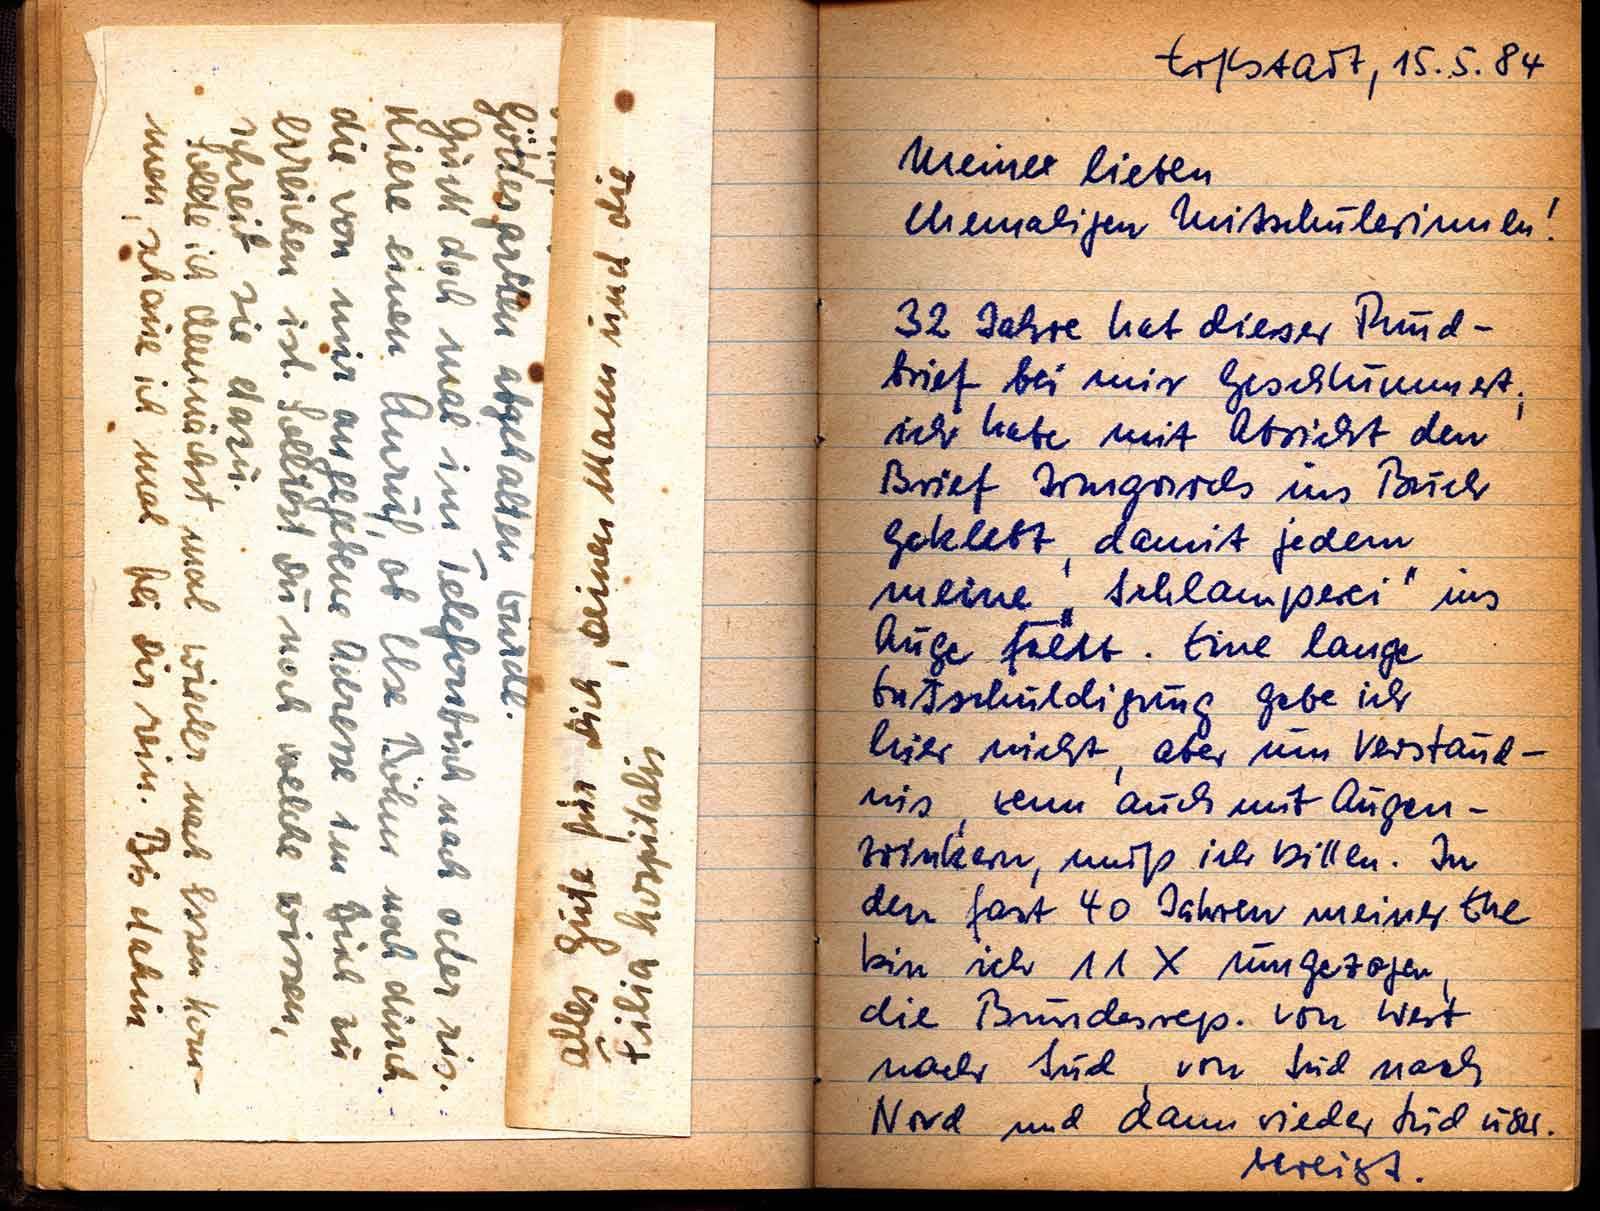 Göttergatten abgehalten wurde.
Guck doch mal im Telefonbuch nach oder ris-
kiere einen Anruf, ob Ilse Böhm noch durch
die von mir angegebene Adresse im Buch zu
erreichen ist. Solltest du noch welche wissen,
schreib sie dazu.
Sollte ich demnächst mal wieder nach Essen kom-
men, schaue ich mal bei dir rein. Bis dahin
alles Gute für Dich, deinen Mann und die
Filia hospitalis
Erftstadt, 15.5.84
Meine lieben
ehemaligen Mitschülerinnen!
32 Jahre hat dieser Rund-
brief bei mir geschlummert,
ich habe mit Absicht den
Brief Irmgards ins Buch
geklebt, damit jedem
meine „Schlamperei" ins
Auge fällt. Eine lange
Entschuldigung gebe ich
hier nicht, aber um Verständ-
nis, wenn auch mit Augen-
zwinkern, muß ich bitten. In
den fast 40 Jahren meiner Ehe
bin ich 11 X umgezogen,
die Bundesrep. von West
nach Süd, von Süd nach
Nord und dann wieder Süd
bereist.